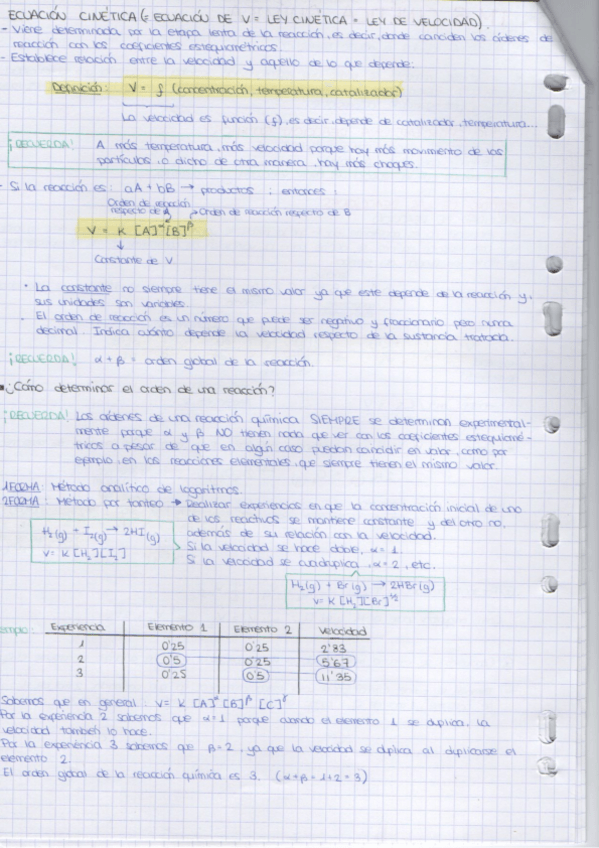 ECUACIÓN CINÉTICA (= ECUACIÓN DE V = LEY CINÉTICA = LEY DE VELOCIDAD).
- Viene determinada por la etapa lenta de la reacción, es decir, donde coinciden los órdenes de
reacción con los coeficientes estequiométricos.
- Establece relación entre la velocidad y aquello de lo que depende.
Definición: V = f (concentración, temperatura, catalizador)
La velocidad es función (f), es decir, depende de catalizador, temperatura...
¡RECUERDA! A más temperatura, más velocidad porque hay más movimiento de las
partículas, o dicho de otra manera, hay más choques.
- Si la reacción es: aA + bB → productos ; entonces :
Orden de reacción
respecto de A
Orden de reacción respecto de B
V = K [A]^α [B]^β
↓
Constante de V
· La constante no siempre tiene el mismo valor ya que este depende de la reacción y
sus unidades son variables.
· El orden de reacción es un número que puede ser negativo y fraccionario pero nunca
decimal. Indica cuánto depende la velocidad respecto de la sustancia tratada.
¡RECUERDA! α + β = orden global de la reacción.
¿Cómo determinar el orden de una reacción?
¡RECUERDA! Los órdenes de una reacción química SIEMPRE se determinan experimental-
mente porque α y β NO tienen nada que ver con los coeficientes estequiomé-
tricos a pesar de que en algún caso puedan coincidir en valor, como por
ejemplo, en las reacciones elementales, que siempre tienen el mismo valor.
1FORMA: Método analítico de logaritmos.
2FORMA: Método por tanteo → Realizar experiencias en que la concentración inicial de uno
de los reactivos se mantiene constante y del otro no,
además de su relación con la velocidad.
Si la velocidad se hace doble, α = 1.
Si la velocidad se cuadruplica, α = 2, etc.
H₂(g) + I₂(g) → 2HI(g)
V = K [H₂][I₂]
H₂(g) + Br(g) → 2HBr(g)
V = K [H₂][Br]^1/2
emplo: Experiencia Elemento 1 Elemento 2 Velocidad
1 0'25 0'25 2'83
2 0'5 0'25 5'67
3 0'25 0'5 11'35
Sabemos que en general: V = K [A]^α [B]^β [C]^γ
Por la experiencia 2 sabemos que α = 1 porque cuando el elemento 1 se duplica, la
velocidad también lo hace.
Por la experiencia 3 sabemos que β = 2, ya que la velocidad se duplica al duplicarse el
elemento 2.
El orden global de la reacción química es 3. (α + β = 1 + 2 = 3)